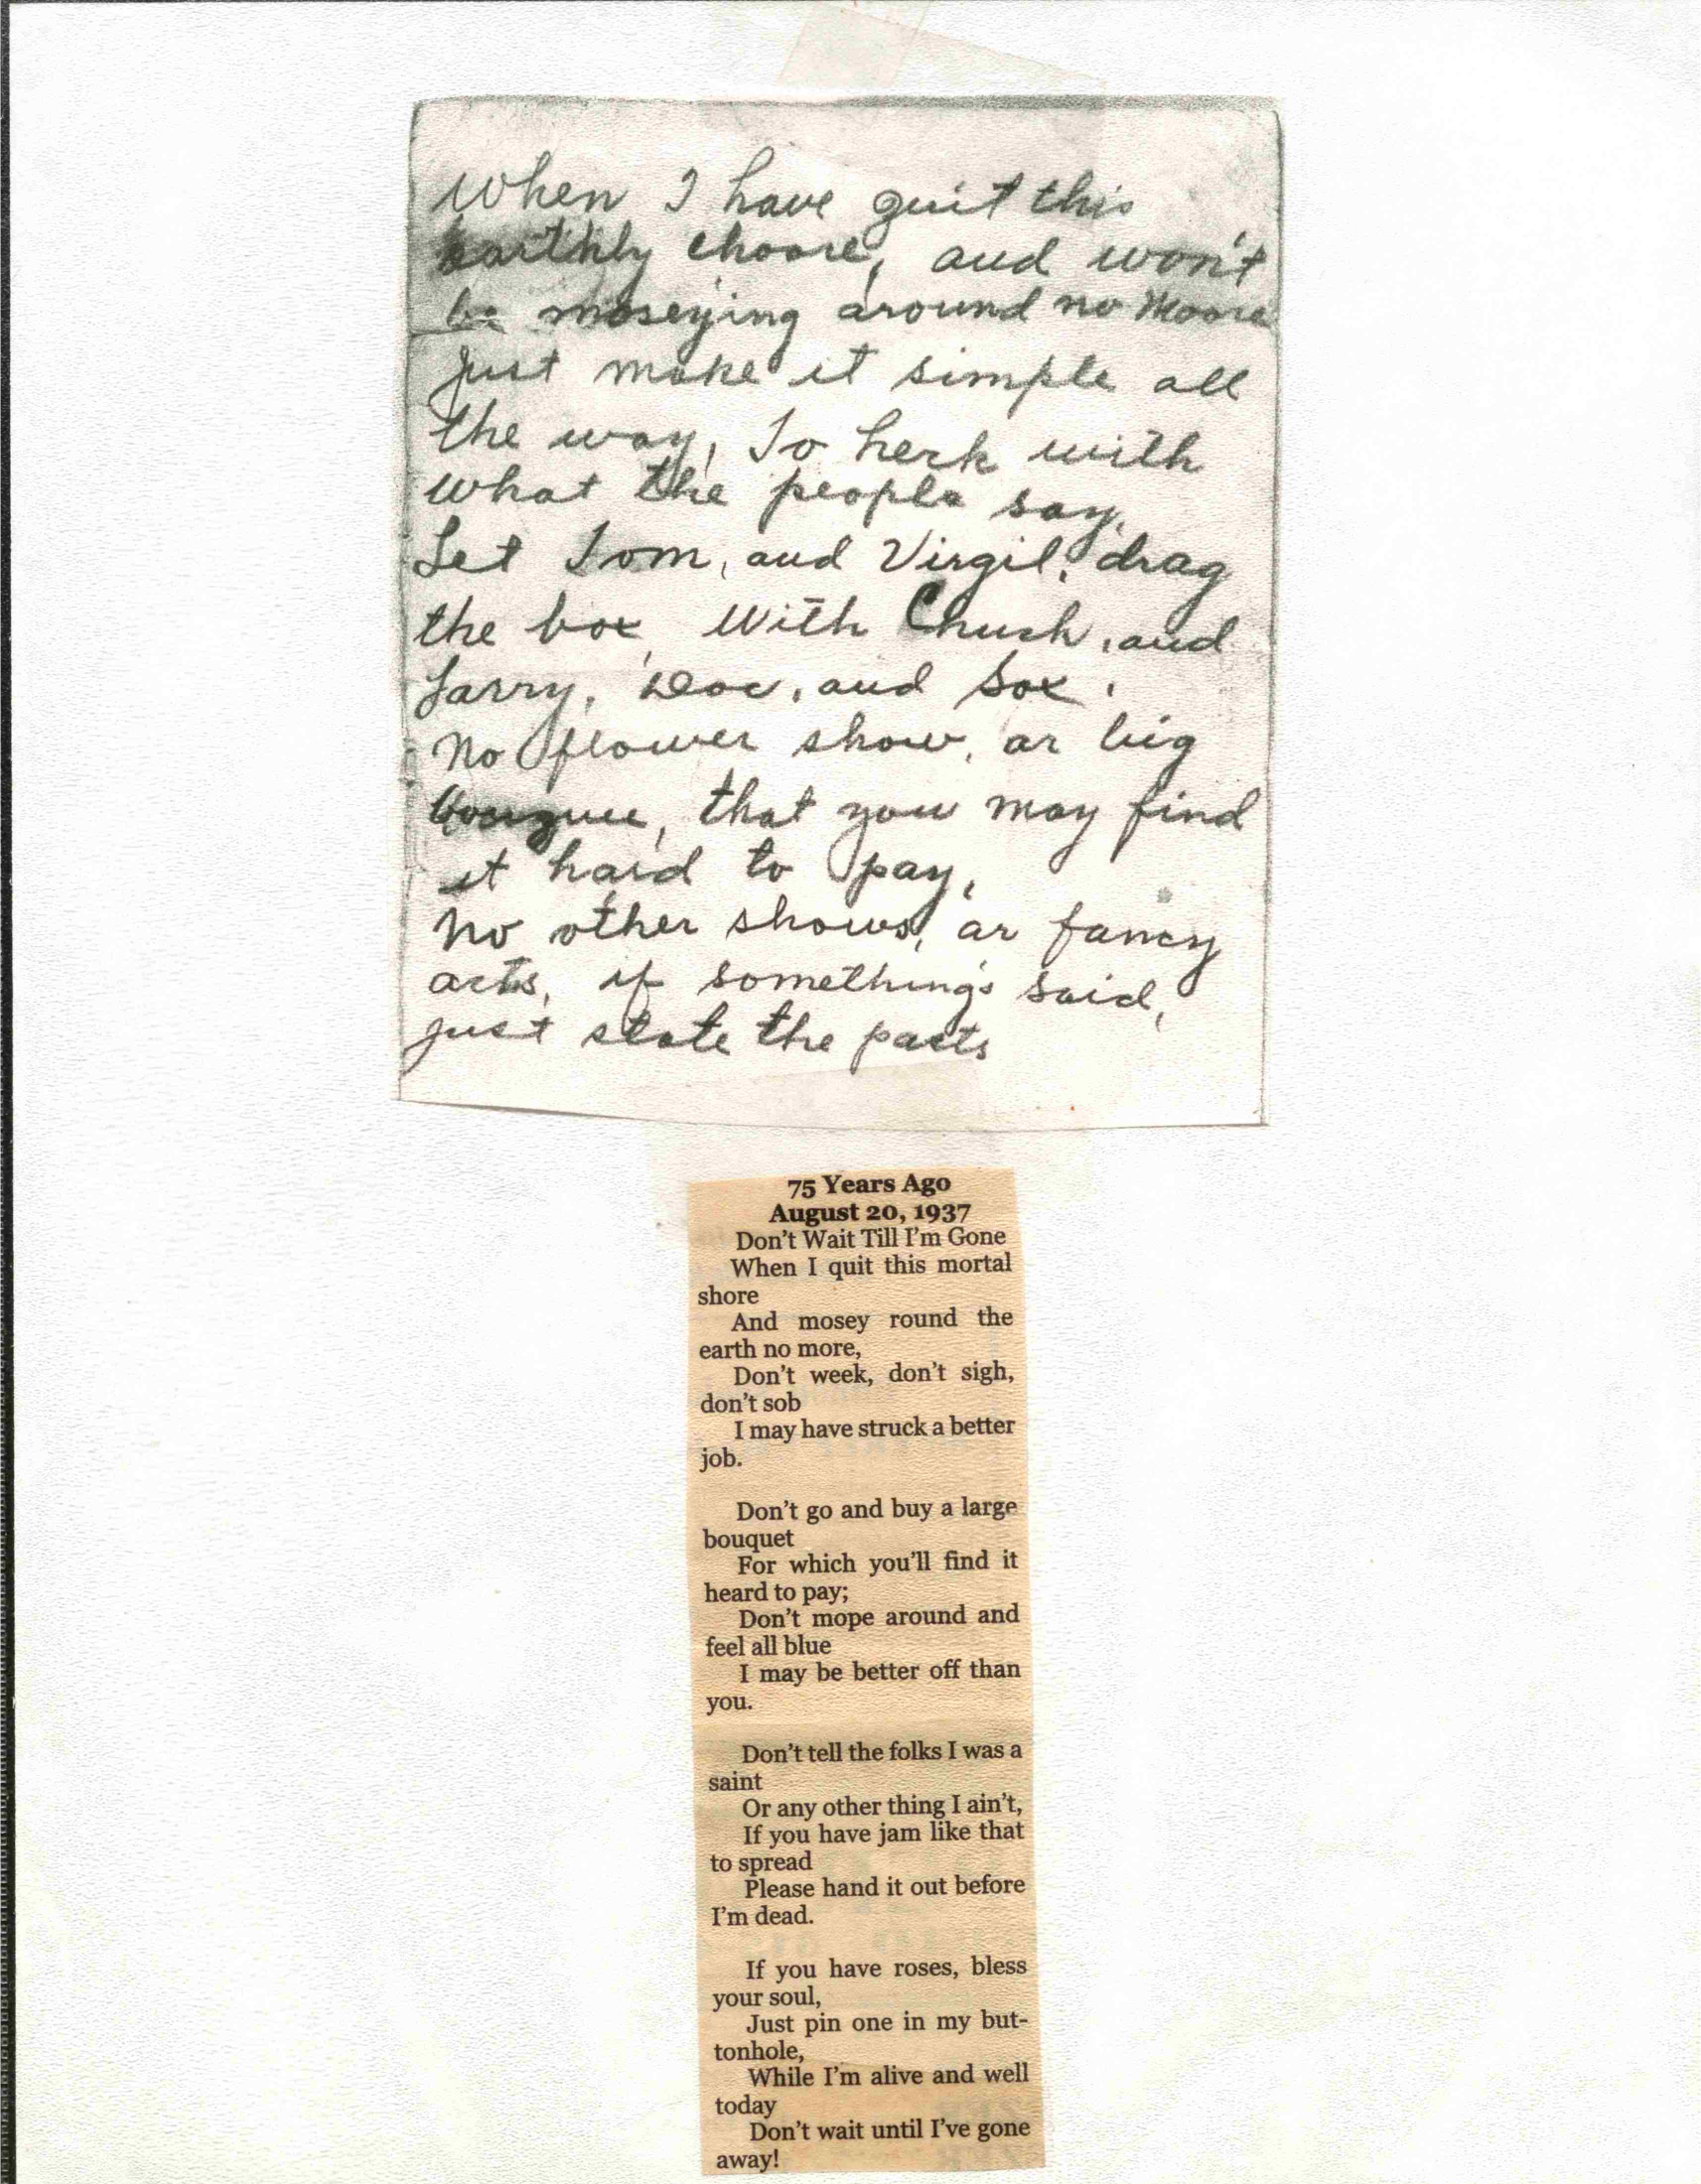 When I have quit this
earthly choore, and won't
be moseying around no Moore
Just make it simple all
the way, To heck with
what the people say.
Let Tom, and Virgil, drag
the box, With Chuck, and
Larry, Doc, and Sox.
No flower show, ar big
that you may find
it hard to pay,
No other shows, ar fancy
acts, if something's said,
just state the facts
75 Years Ago
August 20, 1937
Don't Wait Till I'm Gone
When I quit this mortal
shore
And mosey round the
earth no more,
Don't week, don't sigh,
don't sob
I may have struck a better
job.
Don't go and buy a large
bouquet
For which you'll find it
heard to pay;
Don't mope around and
feel all blue
I may be better off than
you.
Don't tell the folks I was a
saint
Or any other thing I ain't,
If you have jam like that
to spread
Please hand it out before
I'm dead.
If you have roses, bless
your soul,
Just pin one in my but-
tonhole,
While I'm alive and well
today
Don't wait until I've gone
away!